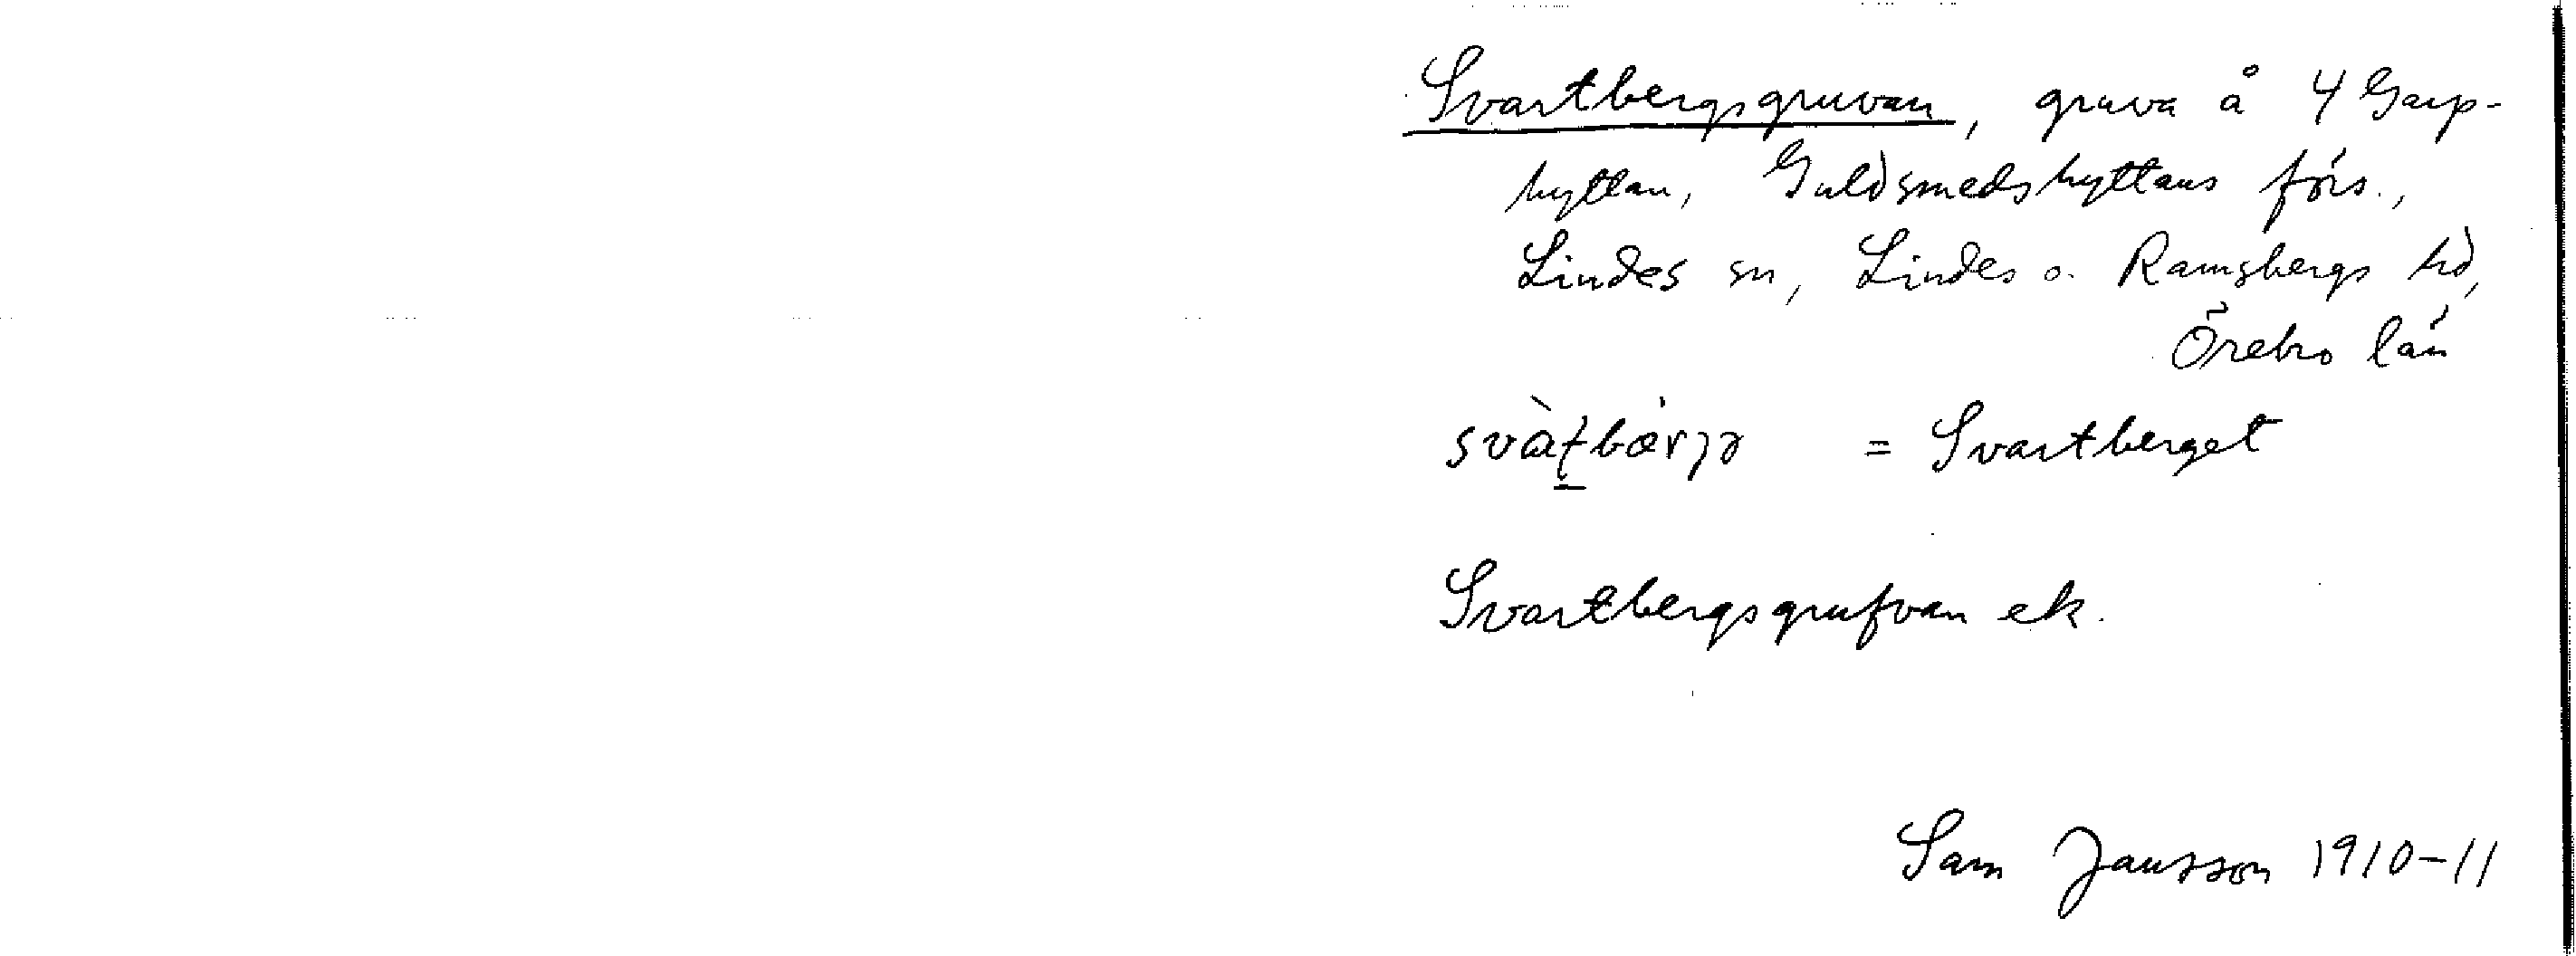 Svartbergsgruvan, gruva å 4 Garp-
hyttan, Guldsmedshyttans förs.,
Lindes sn, Lindes o. Ramsbergs hd,
Örebro län
= Svartberget
Svartbergsgrufvan ek.
Sam Jansson 1910-11